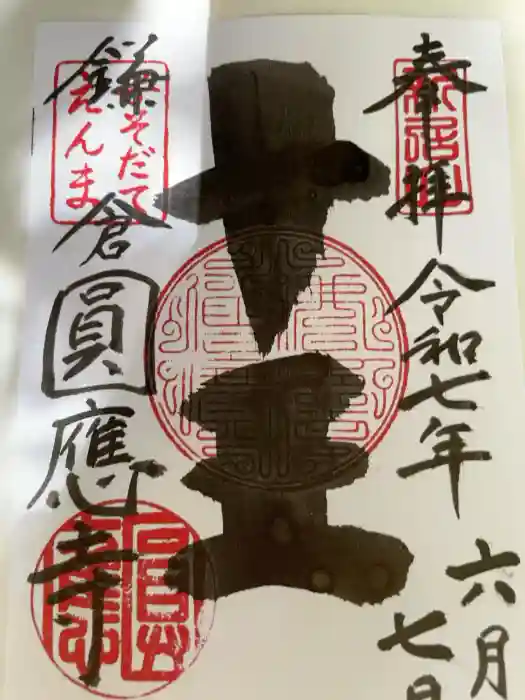 奉拝
令和七年
六月
七日
十王
鎌倉圓應寺
そだて
えんま